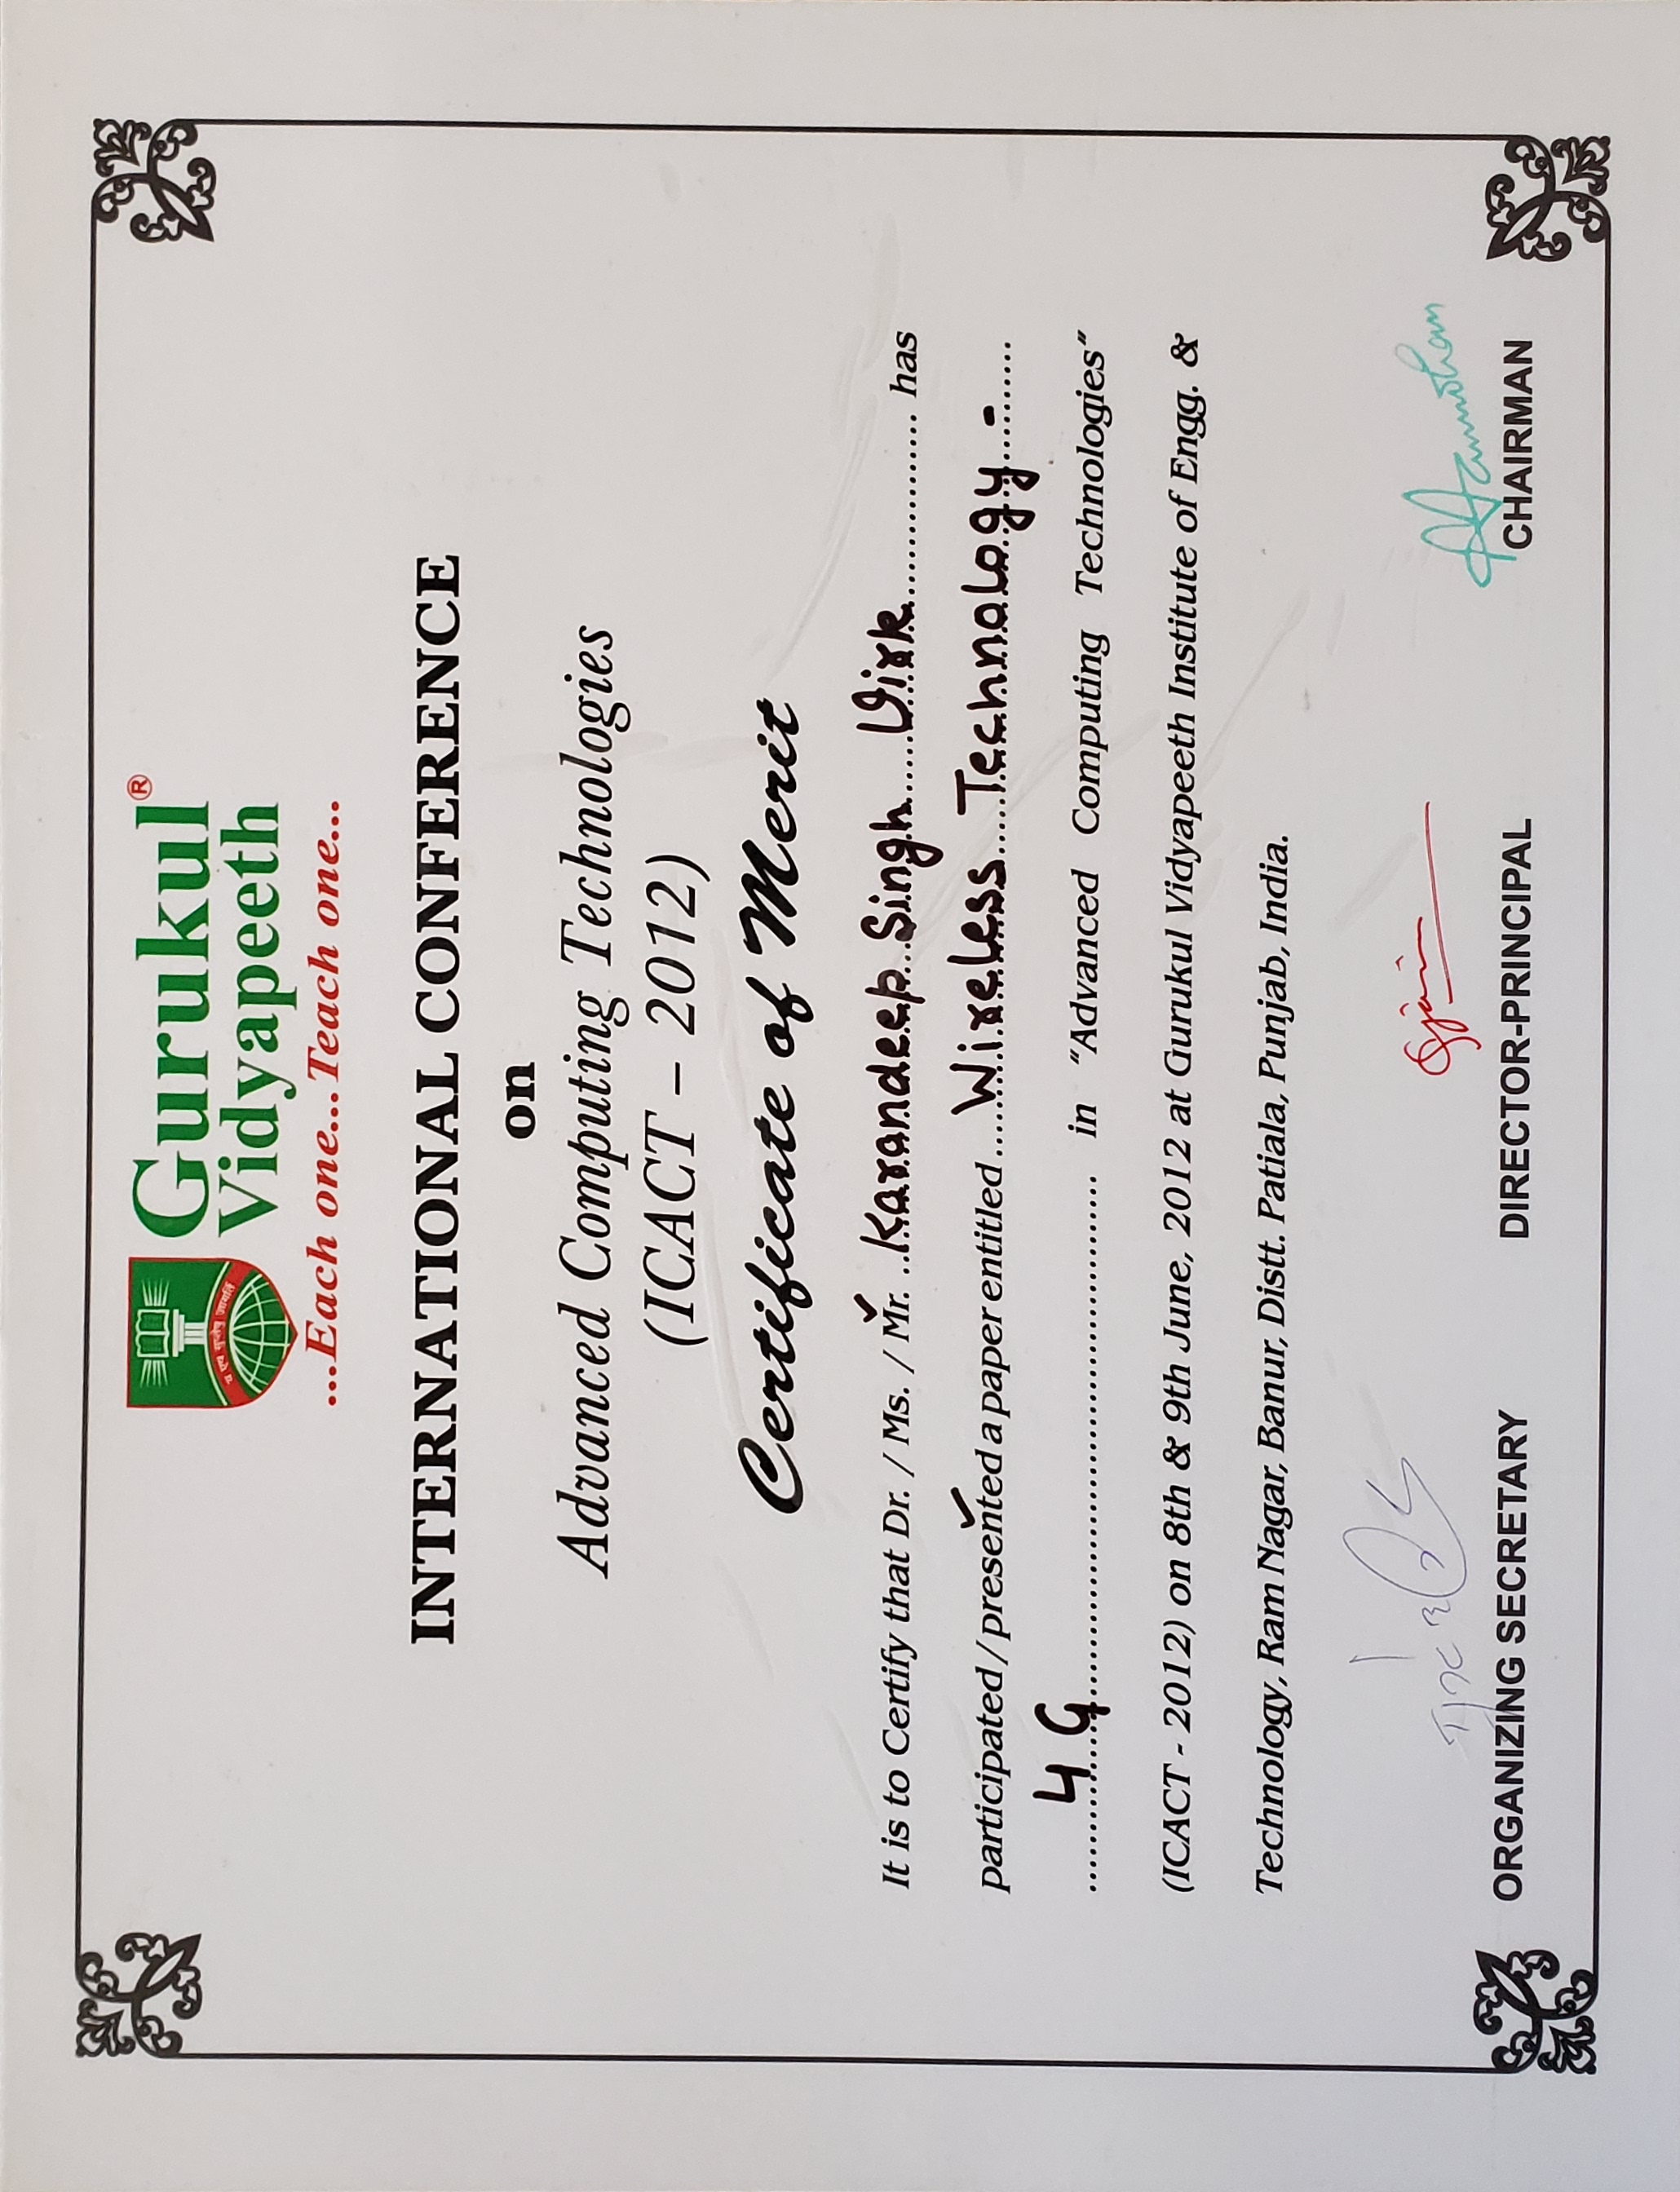 य एष सुप्तेषु जागर्ति
Gurukul®
Vidyapeeth
...Each one...Teach one...
INTERNATIONAL CONFERENCE
on
Advanced Computing Technologies
(ICACT – 2012)
Certificate of Merit
It is to Certify that Dr. / Ms. / Mr. ..Karandeep Singh Virk................ has
participated / presented a paper entitled ....Wireless Technology -......
4 G........................................... in “Advanced Computing Technologies”
(ICACT - 2012) on 8th & 9th June, 2012 at Gurukul Vidyapeeth Institute of Engg. &
Technology, Ram Nagar, Banur, Distt. Patiala, Punjab, India.
ORGANIZING SECRETARY DIRECTOR-PRINCIPAL CHAIRMAN